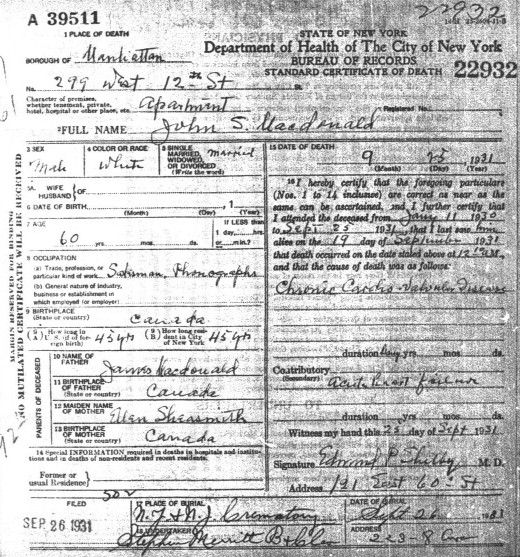 A 39511
22932
1 PLACE OF DEATH
STATE OF NEW YORK
Department of Health of The City of New York
BUREAU OF RECORDS
STANDARD CERTIFICATE OF DEATH 22932
BOROUGH OF Manhattan
No. 299 West 12th St St.
Character of premises,
whether tenement, private,
hotel, hospital or other place, etc. Apartment
Registered No.
2 FULL NAME John S. Macdonald
MARGIN RESERVED FOR BINDING
NO MUTILATED CERTIFICATE WILL BE RECEIVED
3 SEX
Male
4 COLOR OR RACE
White
5 SINGLE
MARRIED,
WIDOWED,
OR DIVORCED
(Write the word)
Married
5A WIFE
HUSBAND OF
6 DATE OF BIRTH
(Month) (Day) (Year)
7 AGE
60 yrs. mos. ds.
If LESS than
1 day, hrs.
or min.?
8 OCCUPATION
(a) Trade, profession, or
particular kind of work Salesman, Phonographs
(b) General nature of industry,
business or establishment in
which employed (or employer)
9 BIRTHPLACE
(State or country) Canada
(9A) How long in
U. S. (if of foreign birth) 45 yrs
(9B) How long resident in City
of New York 45 yrs
PARENTS OF DECEASED
10 NAME OF
FATHER James Macdonald
11 BIRTHPLACE OF
FATHER
(State or country) Canada
12 MAIDEN NAME
OF MOTHER Ellen Shearsmith
13 BIRTHPLACE
OF MOTHER
(State or country) Canada
14 Special INFORMATION required in deaths in hospitals and institutions
and in deaths of non-residents and recent residents.
Former or
usual Residence
15 DATE OF DEATH
9 25 1931
(Month) (Day) (Year)
16 I hereby certify that the foregoing particulars
(Nos. 1 to 14 inclusive) are correct as near as the
same can be ascertained, and I further certify that
I attended the deceased from Jany 11 1930
to Sept 25 1931, that I last saw him
alive on the 19 day of September 1931
that death occurred on the date stated above at 12 M.
and that the cause of death was as follows:
Chronic Cardio-Valvular Disease
duration yrs. mos. ds.
Contributory
(Secondary) Acute heart failure
duration yrs. mos. ds.
Witness my hand this 25 day of Sept 1931
Signature Edmund P. M. D.
Address 121 East 60 St
FILED
SEP 26 1931
17 PLACE OF BURIAL
N.Y. & N.J. Crematory
DATE OF BURIAL
Sept 26 1931
18 UNDERTAKER
Stephen Merritt B & C Co
ADDRESS
223 8 Ave